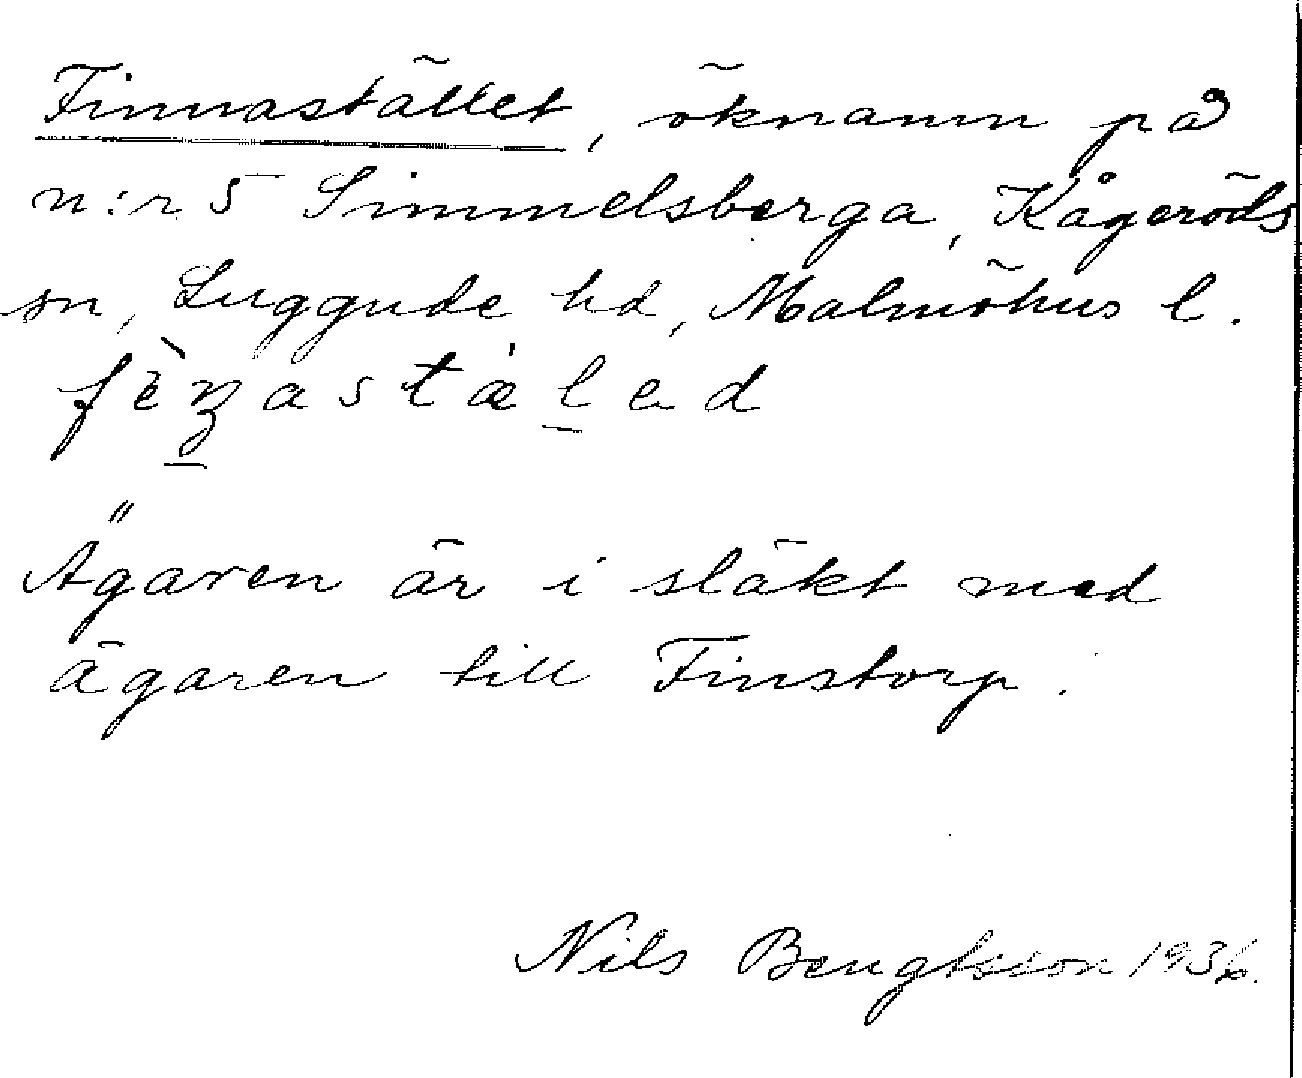 Finnastället, öknamn på
n:r 5 Simmelsberga, Kågeröds
sn, Luggude hd, Malmöhus l.
Ägaren är i släkt med
ägaren till Finstorp.
Nils Bengtsson 1936.